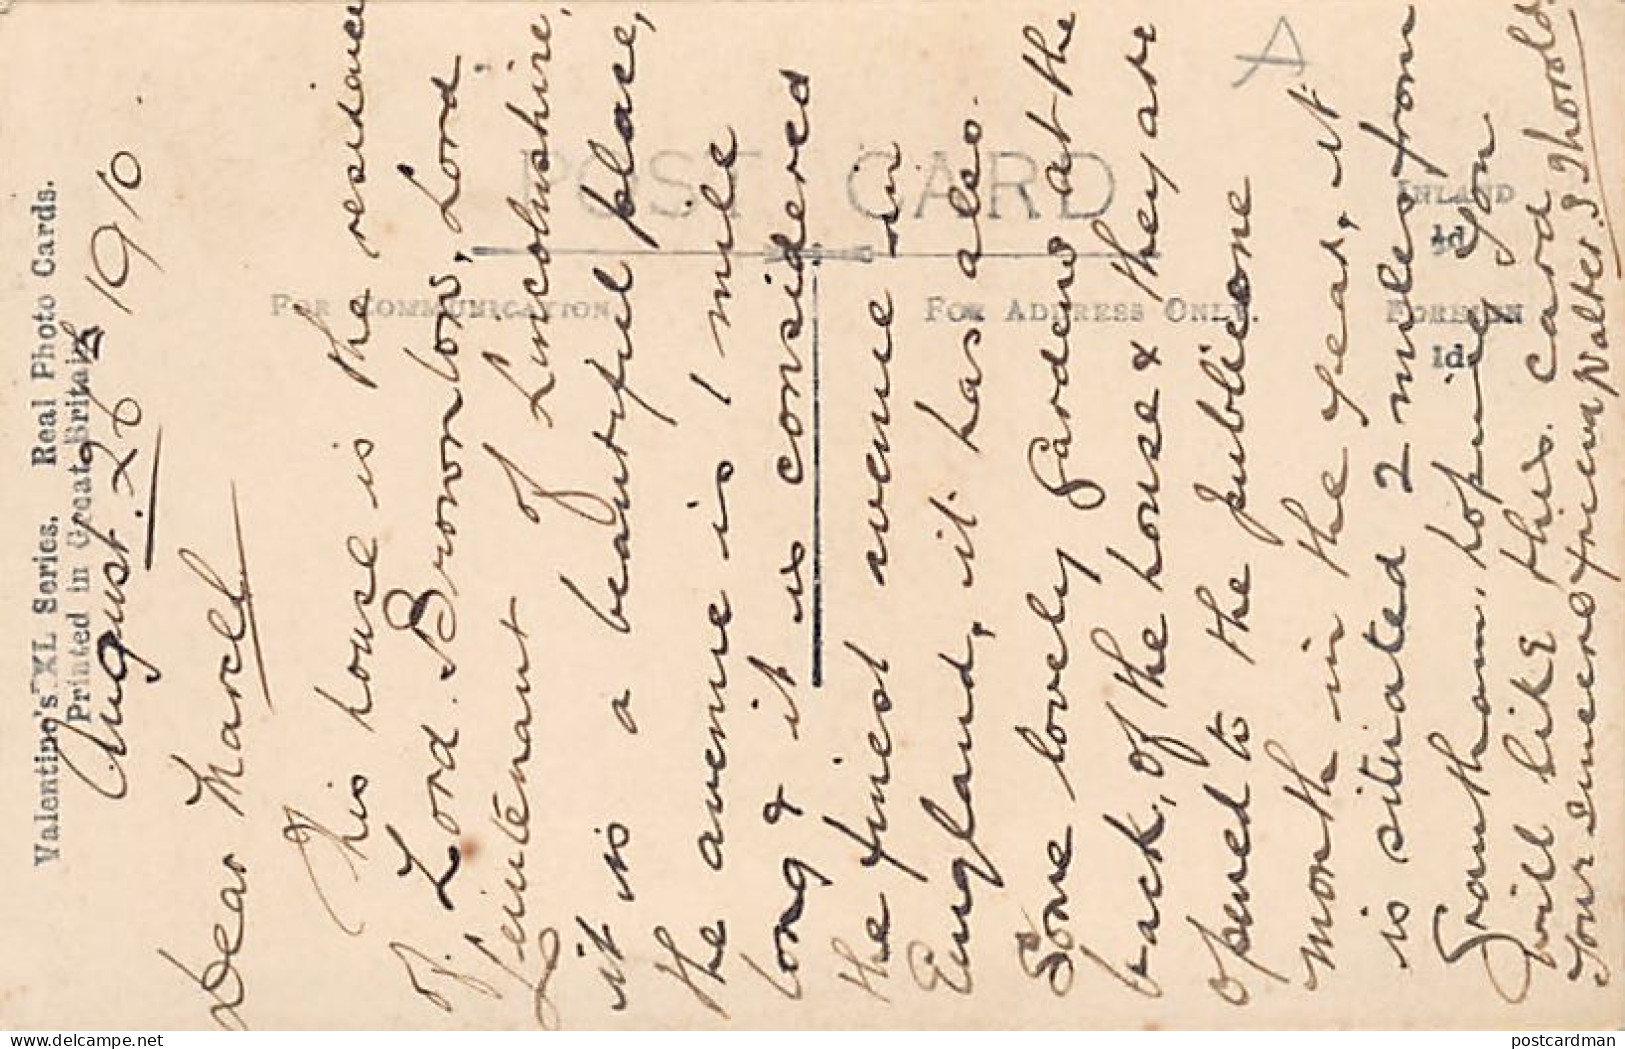 Valentine's XL Series. Real Photo Cards.
Printed in Great Britain
POST CARD
FOR COMMUNICATION
FOR ADDRESS ONLY.
INLAND
½d
FOREIGN
1d
A
August. 26th 1910.
Dear Marcel
This house is the residence
of. Lord. Brownlow, Lord
Leiutenant of Lincolnshire.
it is a beautiful place,
the avenue is 1 mile
long & it is considered
the finest avenue in
England, it has also.
Some lovely Gardens at the
back, of the house & they are
opened to the public one
month in the year, it
is situated 2 miles from
Grantham, hoping you
will like this. card
Your sincere friend Walter.
postcardman